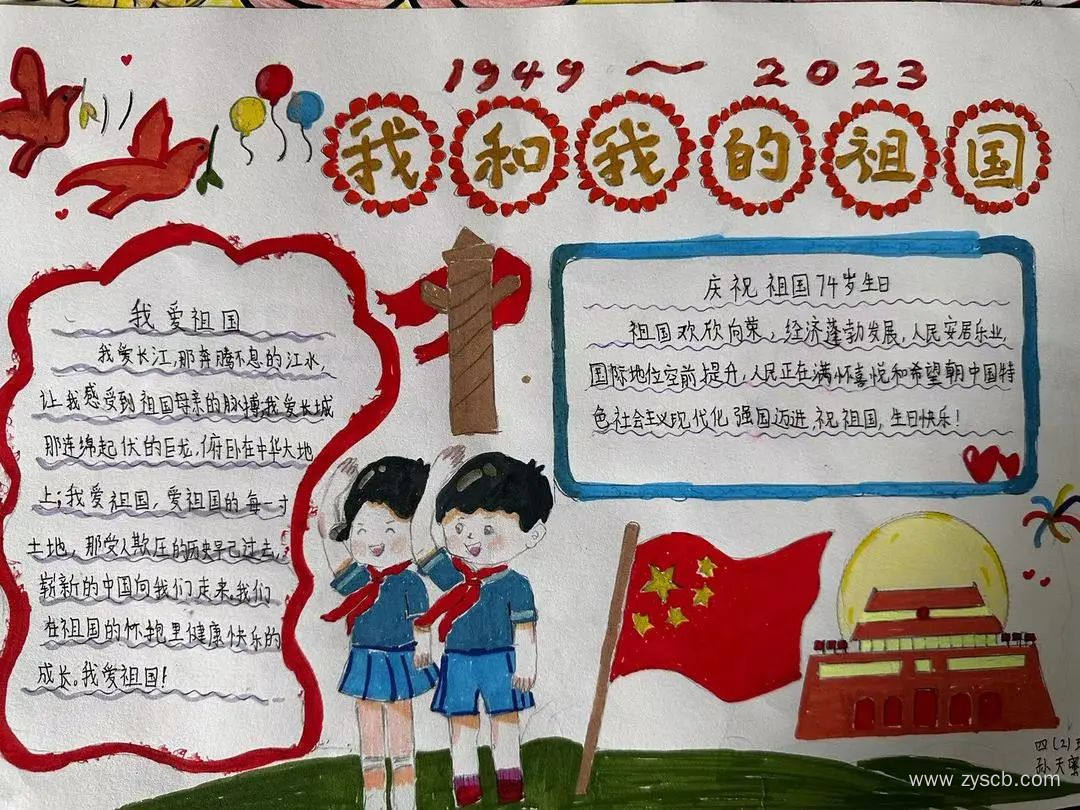 1949～2023
我和我的祖国
我爱祖国
我爱长江,那奔腾不息的江水,
让我感受到祖国母亲的脉搏;我爱长城
那连绵起伏的巨龙,俯卧在中华大地
上;我爱祖国,爱祖国的每一寸
土地,那受人欺压的历史早已过去,
崭新的中国向我们走来。我们
在祖国的怀抱里健康快乐的
成长。我爱祖国!
庆祝祖国74岁生日
祖国欢欣向荣,经济蓬勃发展,人民安居乐业,
国际地位空前提升,人民正在满怀喜悦和希望朝中国特
色社会主义现代化强国迈进,祝祖国,生日快乐!
四(2)
孙天
www.zyscb.com